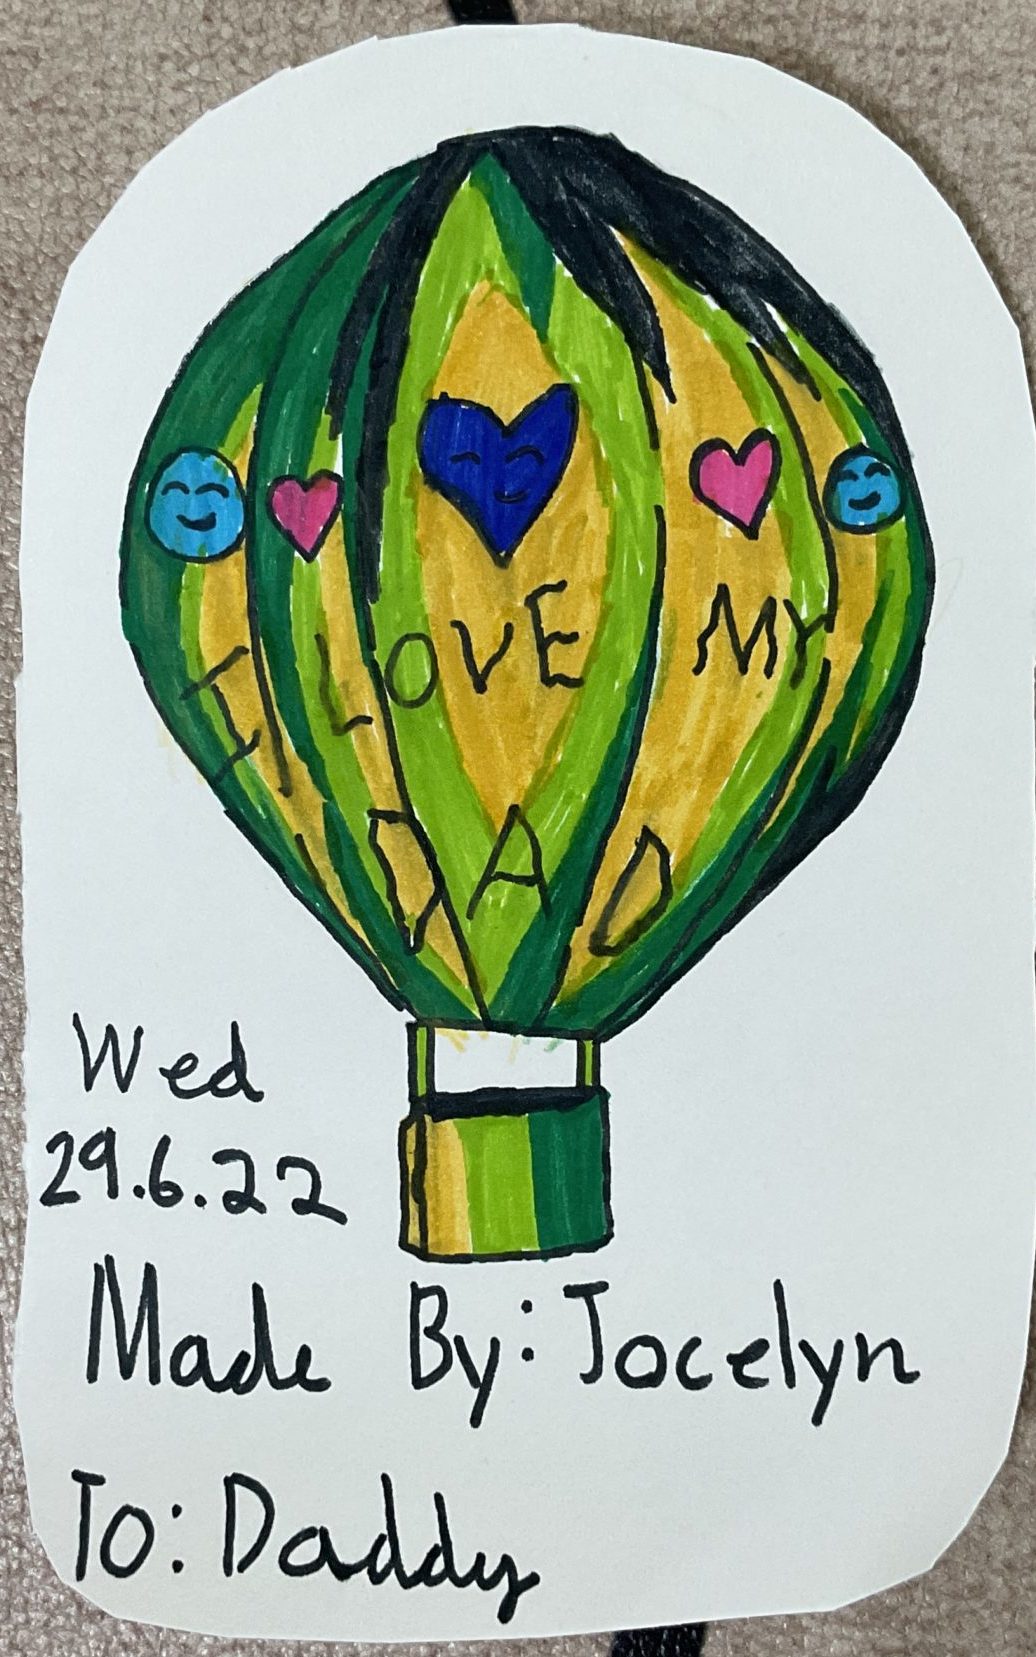 I LOVE MY
DAD
Wed
29.6.22
Made By: Jocelyn
To: Daddy